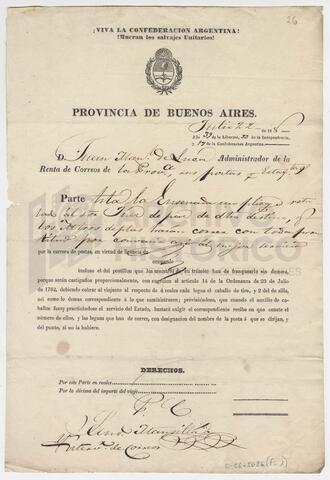 26
¡VIVA LA CONFEDERACION ARGENTINA!
¡Mueran los salvajes Unitarios!
PROVINCIA DE BUENOS AIRES.
Julio 22 de 18
Año 39 de la Libertad, 33 de la Independencia,
y 19 de la Confederacion Argentina.
D. Juan Man.l de Luca Administrador de la
Renta de Correos de la Prov.a sus postas y
Parte hta la Ensenada un pliego
al Sor Juez de paz de dho destino, y
los Mtros de posta harán correr con toda pron
titud
por la carrera de postas, en virtud de licencia de
incluso el del postillon que los maestros de tránsito han de franquearle sin demora,
porque serán castigados proporcionalmente, con sugecion al artículo 14 de la Ordenanza de 23 de Julio
de 1782, debiendo cobrar al viajante al respecto de 4 reales cada legua el caballo de tiro, y 2 del de silla,
asi como lo demas correspondiente á lo que suministraren; previniéndose, que cuando el ausilio de caba-
llos fuere practicándose el servicio del Estado, bastará exigir el correspondiente recibo en que conste el
número de ellos, y las leguas que han de correr, con designacion del nombre de la posta á que se dirijan, y
del punto, si no la hubiere.
DERECHOS.
Por este Parte en reales
Por la décima del importe del viaje
F. C.
Lino Mansilla
Interv.r de Correos